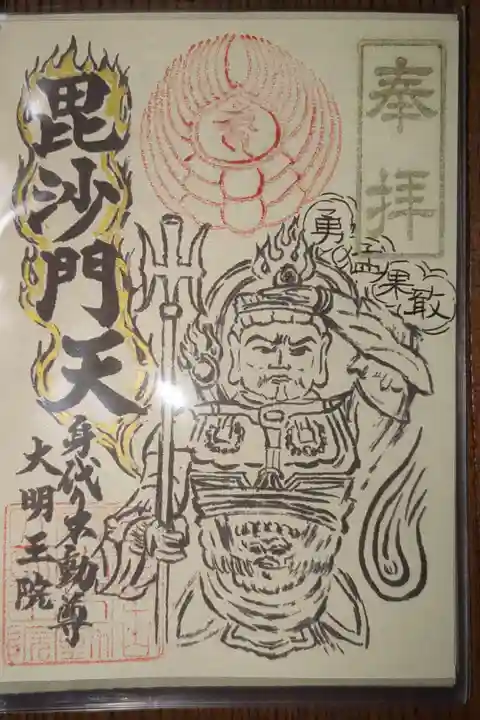 奉拝
勇猛果敢
毘沙門天
身代り不動尊
大明王院